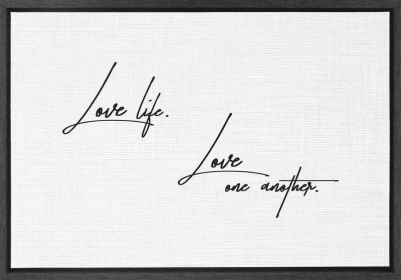 Love life.
Love
one another.